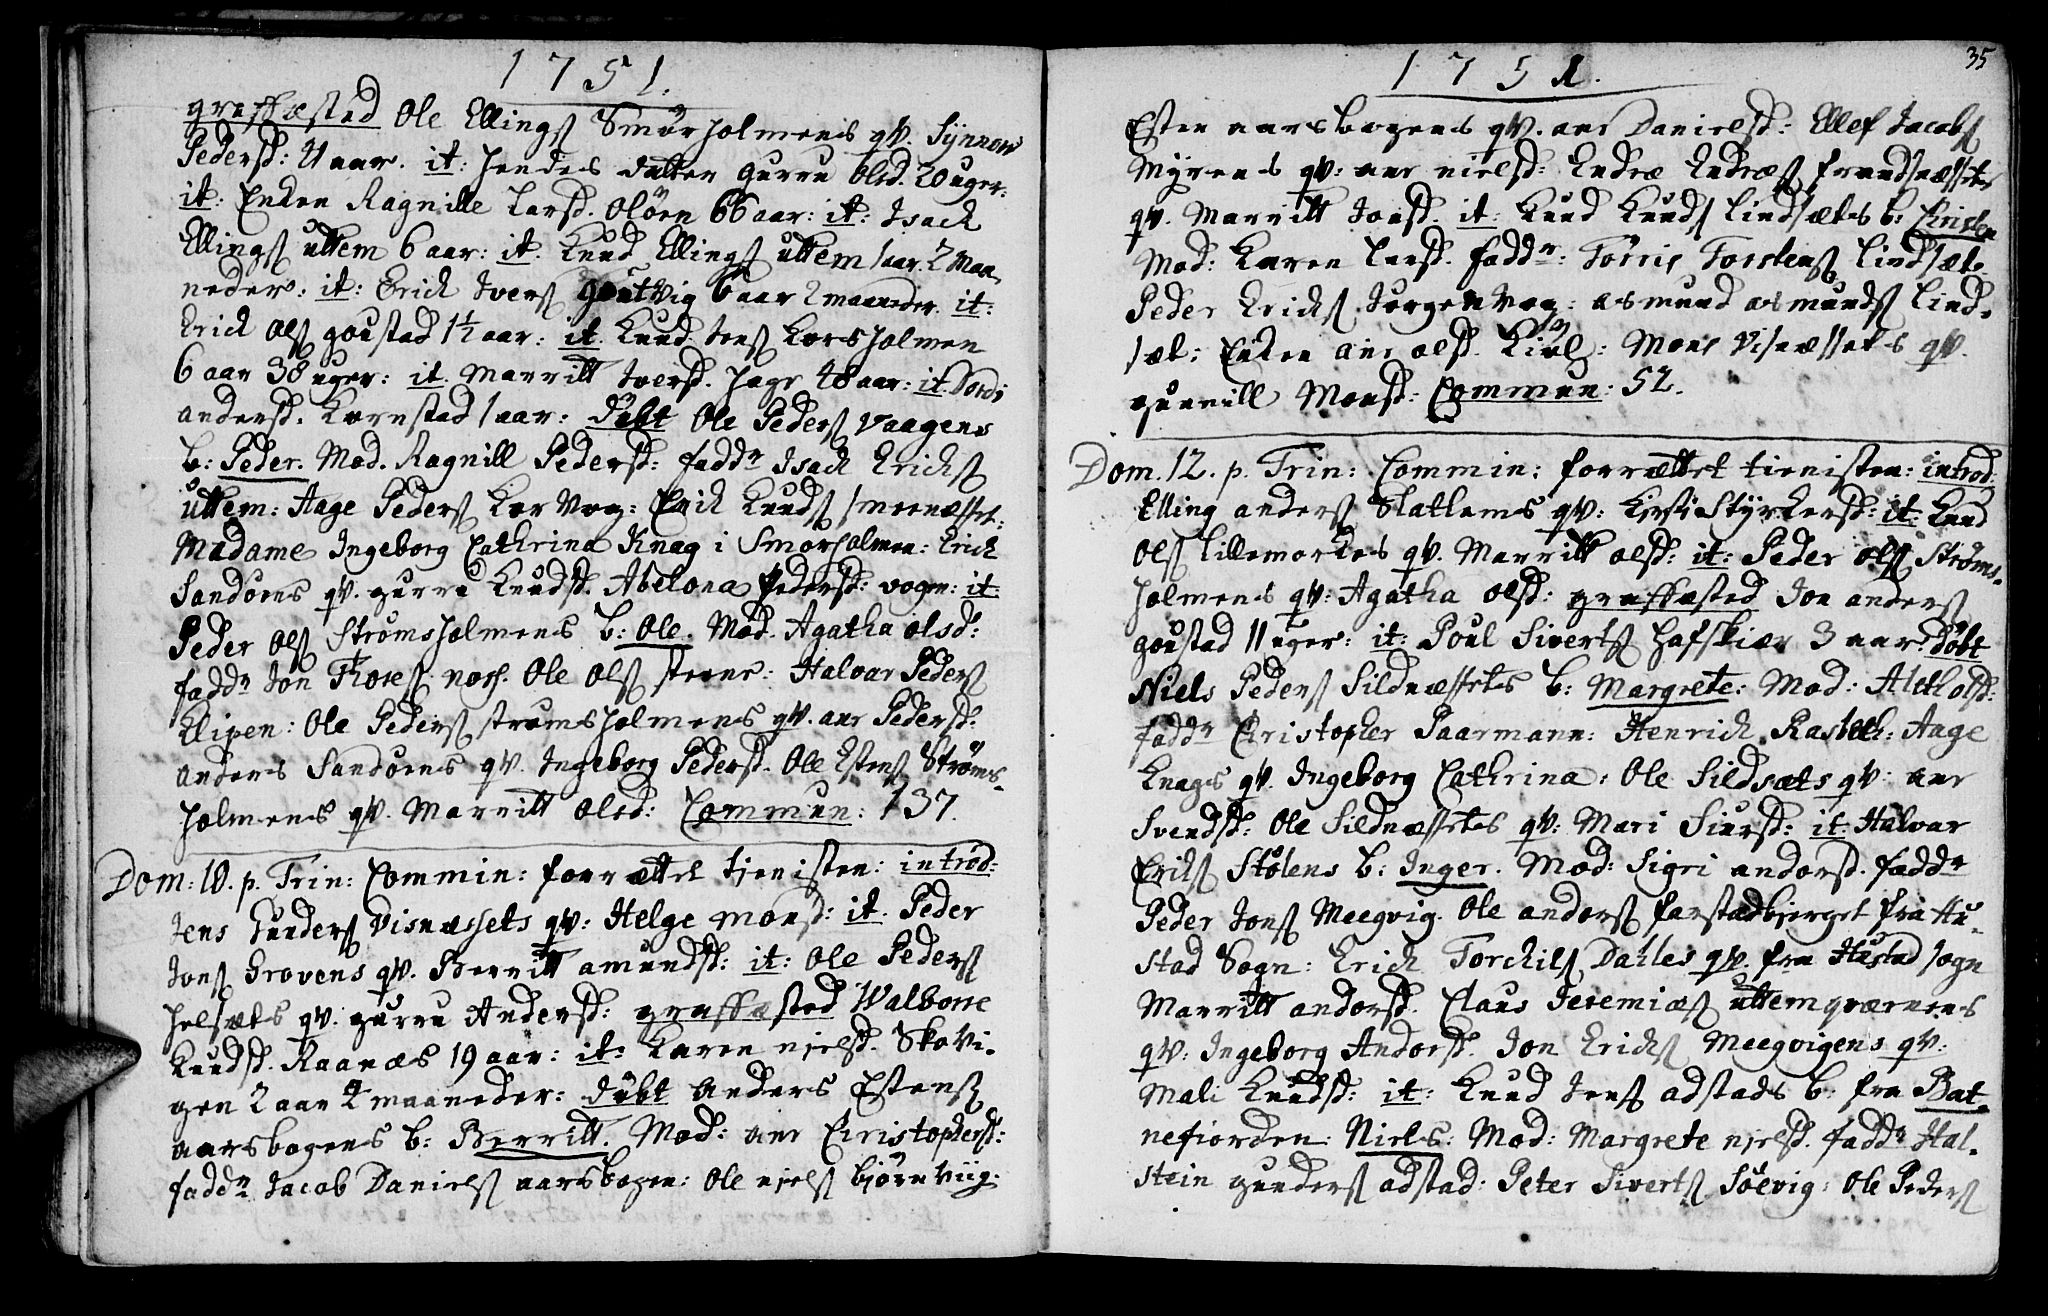 1751.
graffæsted Ole Ellings Smörholmens qv. Synnow
Pedersd: 21 aar. it: hendes datter Gurru Olsd. 20 uger.
it: Enken Ragnille Larsd. Olöen 66 aar: it: Isach
Ellings Uttem 6 aar: it. Knud Ellings uttem 1 aar. 2 maa
neder: it: Erich Ivers Goutvig 6 aar 2 maaneder. it:
Erich Ols goustad 1½ aar: it. Knud Jens Korsholmen
6 aar 38 uger: it. Marritt Iversd. Hage 48 aar: it. Dordi
andersd. Kornstad 1 aar: Döbt Ole Peders Vaagens
b: Peder. Mod. Ragnill Pedersd: faddr Isach Erichs
Uttem: Aage Peders Korvog: Erich Knuds
Madame Ingeborg Cathrina Knag i Smorholmen: Erich
Sandöens qv. gurru Knudsd. Abelona Pedersd: vogen: it:
Peder Ols Strömsholmens b: Ole. Mod. Agatha olsd:
faddr Jon Thores Ole Ols Halvar Peders
Klipen: Ole Peders strømsholmens qv. ane Pedersd:
anders Sandöens qv. Ingeborg Pedersd. Ole Estens Ströms-
holmens qv. Marritt olsd: Commun: 137.
Dom: 10. p. Trin: Commin: forrættet tienisten: introd:
Jens Gunders Visnæssets qv: Helge monsd: it. Peder
Jons Grovens qv. Berritt amundsd: it: Ole Peders
helsæts qv. gurru Andersd: graffæsted Walborre
Knudsd. Raanæs 19 aar: it: Karen nielsd. Skovi-
gen 2 aar 4 maaneder: döbt anders Estens
aarsbogens b: Berritt. Mod: ane Christophersd:
faddr Jacob Daniels aarsbogen: Ole niels biörnviig:
1751.
35
Esten aarsbogens qv. ane Danielsd: Ellef Jacobs
Myrens qv: ane nielsd: Endre Endres
qv. Marritt Jonsd. it: Knud Knuds lindsæts b: Christen
Mod: Karen larsd. faddr: Torris Torstens lindsæt:
Peder Erichs Jorgenvog: asmund asmunds lind-
sæt: Enken ane olsd. Mons Visnæssets qv.
gunnill Monsd: Commun: 52.
Dom. 12. p. Trin: Commin: forrættet tienisten: introd:
Elling anders Slatlems qv: Kirsti Styrkersd: it: Knud
Ols lillemorkes qv. Marritt olsd: it: Peder ols Ströms-
holmens qv: Agatha olsd: graffæsted Jon anders
goustad 11 uger: it: Poul Siverts hafskier 3 aar: döbt
Niels Peders Sildnæssets b: Margrete: Mod: Aleth olsd:
faddr Christopher Paarmann: Henrich Aage
Knags qv. Ingeborg Cathrina: Ole Sildsæts qv: ane
Svendsd: Ole Sildnæssets qv: Mari Siursd: it: Halvar
Erichs Stölens b: Inger. Mod: Sigri andersd. faddr
Peder Jons Meegvig. Ole anders farstadbierget fra Hu-
stad Sogn: Erich Torchils Dahles qv. fra Hustad sogn
Marritt andersd. Claus Jeremias uttemqværnens
qv: Ingeborg Andersd. Jon Erichs Meegvigens qv:
Mali Knudsd: it: Knud Jens adstads b: fra Bat-
nefiorden: Niels: Mod: Margrete nielsd. faddr Hal-
stein gunders adstad: Peter Siverts Söevig: Ole Peders